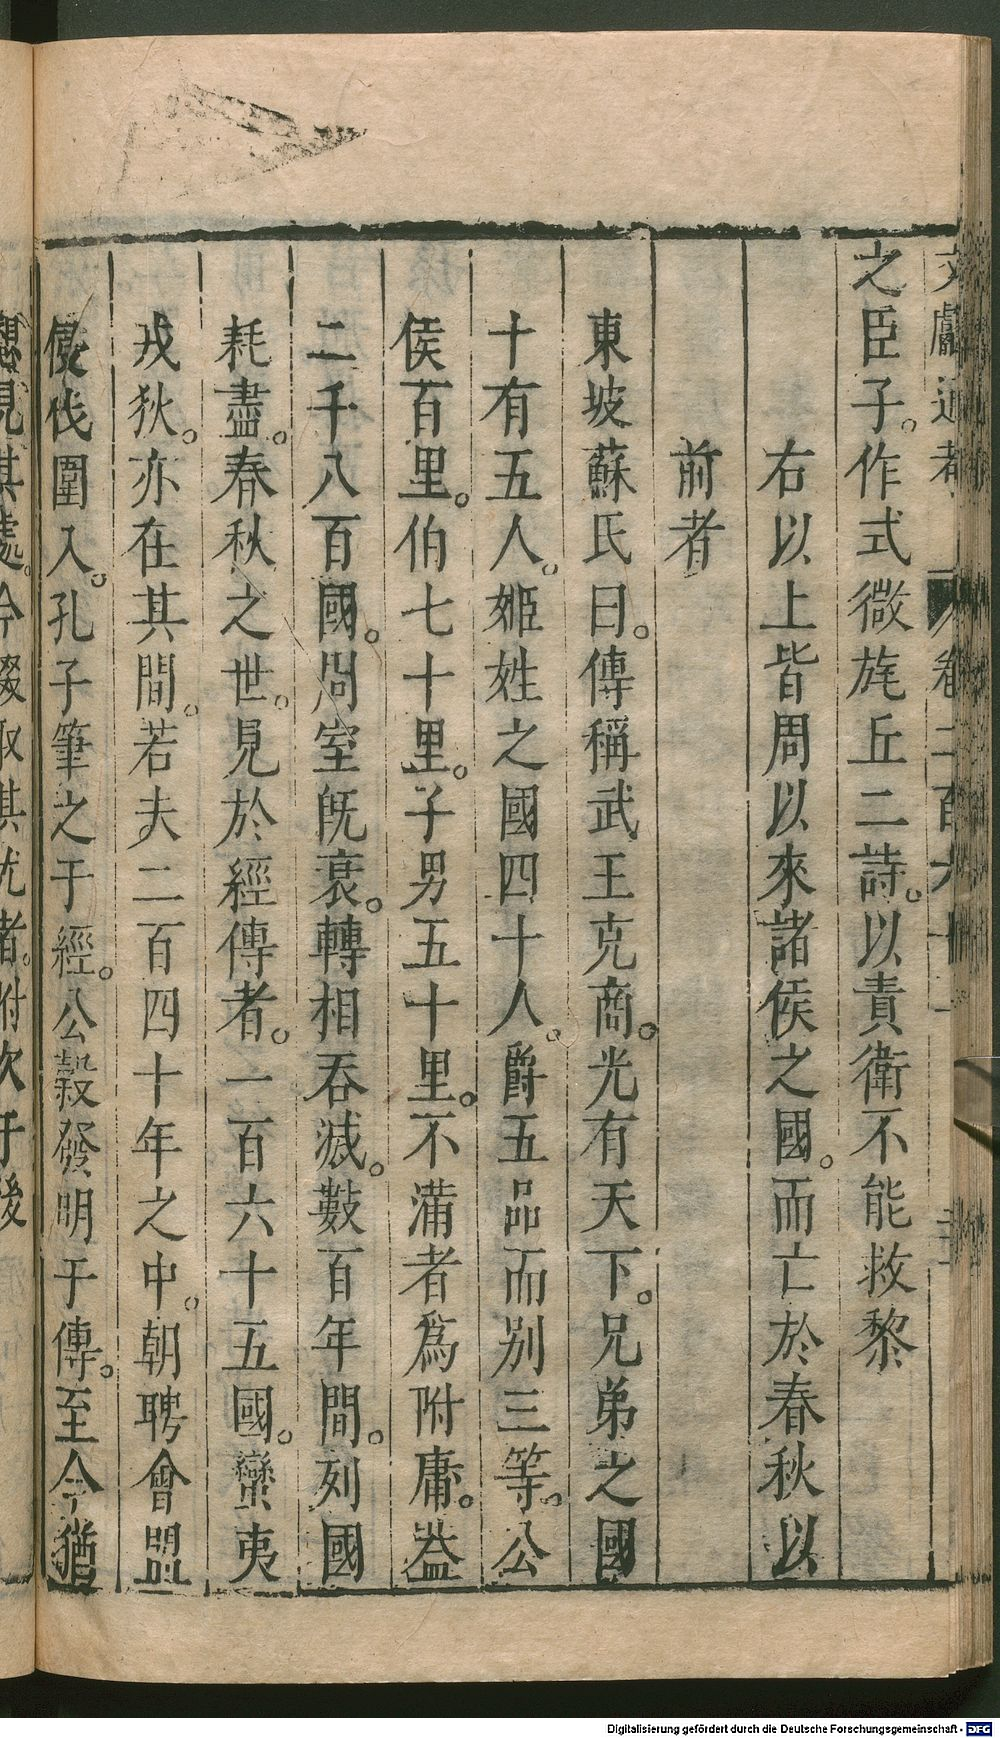 文獻通考 卷二百六十二
之臣子。作式微旄丘二詩。以責衛不能救黎
右以上皆周以來諸侯之國。而亡於春秋以
前者
東坡蘇氏曰。傳稱武王克商。光有天下。兄弟之國
十有五人。姬姓之國四十人。爵五品而別三等。公
侯百里。伯七十里。子男五十里。不滿者爲附庸。葢
二千八百國。周室旣衰。轉相吞滅。數百年間。列國
耗盡。春秋之世。見於經傳者。一百六十五國。蠻夷
戎狄。亦在其間。若夫二百四十年之中。朝聘會盟
侵伐圍入。孔子筆之于經。公穀發明于傳。至今猶
想見其處。今掇取其尤者。附次于後
Digitalisierung gefördert durch die Deutsche Forschungsgemeinschaft - DFG